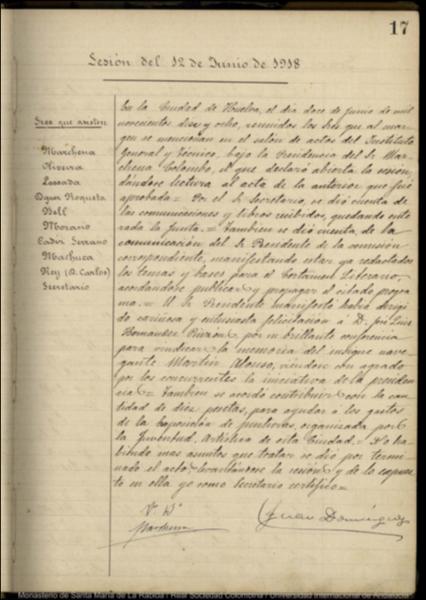 17
Sesión del 12 de Junio de 1918
Sres que asisten
Marchena
Oliveira
Losada
Dgnez Roqueta
Bell
Morano
Cadiz Serrano
Machuca
Rey (D. Carlos)
Secretario
En la Ciudad de Huelva, el dia doce de Junio de mil
novecientos diez y ocho, reunidos los Sres que al mar-
gen se mencionan en el salón de actos del Instituto
General y Técnico, bajo la Presidencia del Sr Mar-
chena Colombo, el que declaró abierta la sesión,
dándose lectura al acta de la anterior que fué
aprobada = Por el Sr Secretario, se dió cuenta de
las comunicaciones y libros recibidos, quedando ente-
rada la Junta. = Tambien se dió cuenta, de la
comunicación del Sr Presidente de la comisión
correspondiente, manifestando estar ya redactados
los temas y bases para el Certamen Literario,
acordandose publicar y propagar el citado progra-
ma. = El Sr Presidente manifestó habia dirigi-
do cariñosa y entusiasta felicitación á D. José Luis
Hernandez Pinzón por su brillante conferencia
para vindicar la memoria del insigne nave-
gante Martin Alonso, viendose con agrado
por los concurrentes la iniciativa de la presiden-
cia = Tambien se acordó contribuir con la can-
tidad de diez pesetas, para ayudar á los gastos
de la Exposición de pinturas, organizada por
la Juventud Artística de esta Ciudad. = No ha-
biendo mas asuntos que tratar se dió por termi-
nado el acto levantándose la sesión y de lo expues-
to en ella yo como Secretario certifico =
Vº Bº
Marchena
Juan Dominguez
Monasterio de Santa María de La Rábida / Real Sociedad Colombina / Universidad Internacional de Andalucía